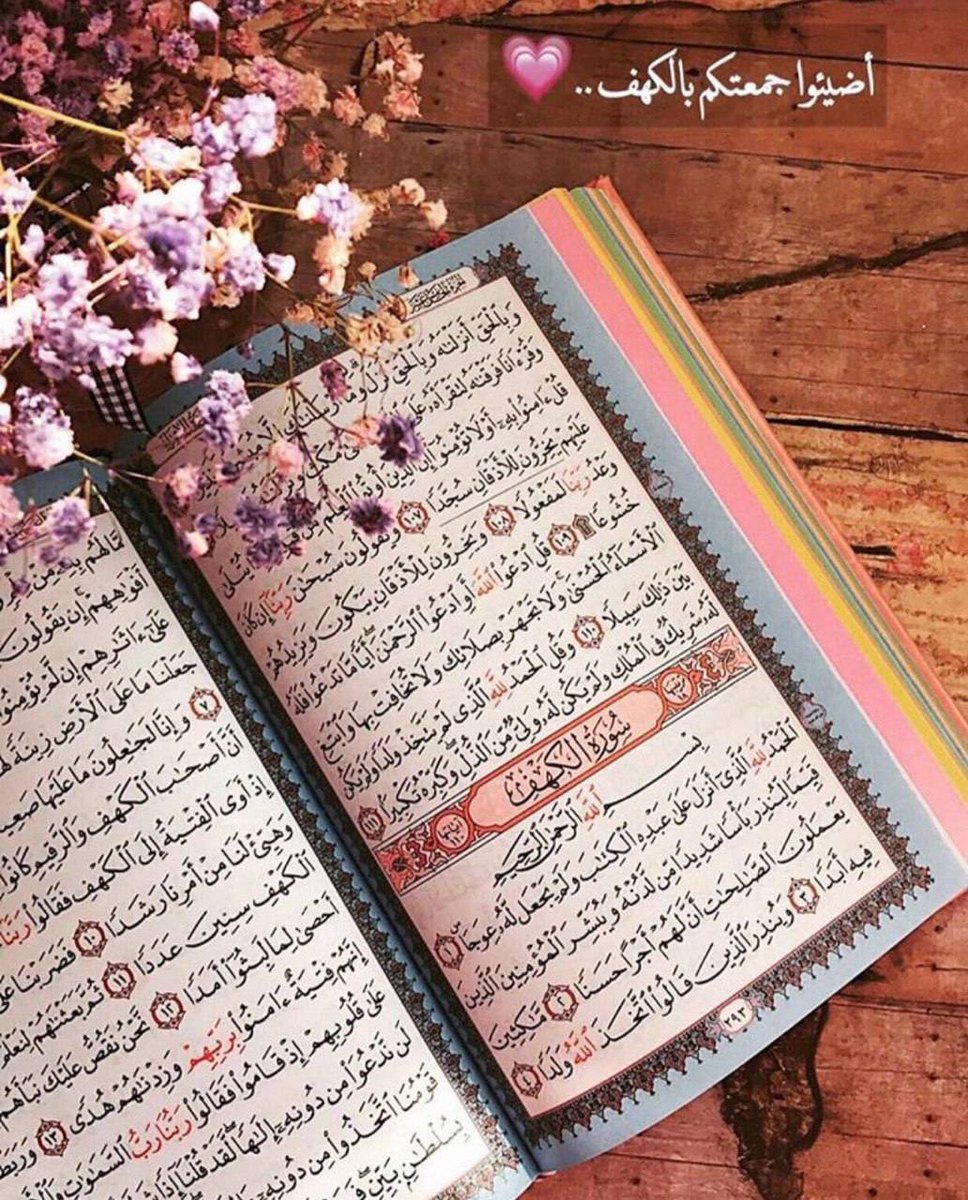 أضيئوا جمعتكم بالكهف ..
وَبِالْحَقِّ أَنزَلْنَٰهُ وَبِالْحَقِّ نَزَلَ وَمَا
وَقُرْءَانًا فَرَقْنَٰهُ لِتَقْرَأَهُۥ عَلَى مُكْثٍ
قُلْ ءَامِنُوا۟ بِهِۦٓ أَوْ لَا تُؤْمِنُوٓا۟ إِنَّ الَّذِينَ أُوتُوا۟ الْعِلْمَ مِن يُتْلَىٰ
عَلَيْهِمْ يَخِرُّونَ لِلْأَذْقَانِ سُجَّدًا ١٠٧ وَيَقُولُونَ سُبْحَٰنَ رَبِّنَآ إِن كَانَ
وَعْدُ رَبِّنَا لَمَفْعُولًا ١٠٨ وَيَخِرُّونَ لِلْأَذْقَانِ يَبْكُونَ وَيَزِيدُهُمْ
خُشُوعًا ۩ ١٠٩ قُلِ ادْعُوا۟ اللَّهَ أَوِ ادْعُوا۟ الرَّحْمَٰنَ أَيًّا مَّا تَدْعُوا۟ فَلَهُ
الْأَسْمَآءُ الْحُسْنَىٰ وَلَا تَجْهَرْ بِصَلَاتِكَ وَلَا تُخَافِتْ بِهَا وَابْتَغِ
بَيْنَ ذَٰلِكَ سَبِيلًا ١١٠ وَقُلِ الْحَمْدُ لِلَّهِ الَّذِى لَمْ يَتَّخِذْ وَلَدًا وَلَمْ يَكُن
لَّهُۥ شَرِيكٌ فِى الْمُلْكِ وَلَمْ يَكُن لَّهُۥ وَلِىٌّ مِّنَ الذُّلِّ وَكَبِّرْهُ تَكْبِيرًا ١١١
سُورَةُ الْكَهْفِ
بِسْمِ اللَّهِ الرَّحْمَٰنِ الرَّحِيمِ
الْحَمْدُ لِلَّهِ الَّذِىٓ أَنزَلَ عَلَىٰ عَبْدِهِ الْكِتَٰبَ وَلَمْ يَجْعَل لَّهُۥ عِوَجَا ۜ ١
قَيِّمًا لِّيُنذِرَ بَأْسًا شَدِيدًا مِّن لَّدُنْهُ وَيُبَشِّرَ الْمُؤْمِنِينَ الَّذِينَ
يَعْمَلُونَ الصَّٰلِحَٰتِ أَنَّ لَهُمْ أَجْرًا حَسَنًا ٢ مَّٰكِثِينَ
فِيهِ أَبَدًا ٣ وَيُنذِرَ الَّذِينَ قَالُوا۟ اتَّخَذَ اللَّهُ وَلَدًا ٤
٢٩٣
مَّا لَهُم بِهِۦ مِنْ
أَفْوَٰهِهِمْ إِن يَقُولُونَ
عَلَىٰٓ ءَاثَٰرِهِمْ إِن لَّمْ يُؤْمِنُوا۟
جَعَلْنَا مَا عَلَى الْأَرْضِ زِينَةً
٧ وَإِنَّا لَجَٰعِلُونَ مَا عَلَيْهَا
أَنَّ أَصْحَٰبَ الْكَهْفِ وَالرَّقِيمِ كَانُوا۟
إِذْ أَوَى الْفِتْيَةُ إِلَى الْكَهْفِ فَقَالُوا۟ رَبَّنَآ
وَهَيِّئْ لَنَا مِنْ أَمْرِنَا رَشَدًا ١٠ فَضَرَبْنَا
الْكَهْفِ سِنِينَ عَدَدًا ١١ ثُمَّ بَعَثْنَٰهُمْ لِنَعْلَمَ
أَحْصَىٰ لِمَا لَبِثُوٓا۟ أَمَدًا ١٢ نَّحْنُ نَقُصُّ عَلَيْكَ نَبَأَهُم
إِنَّهُمْ فِتْيَةٌ ءَامَنُوا۟ بِرَبِّهِمْ وَزِدْنَٰهُمْ هُدًى ١٣ وَرَبَطْنَا
عَلَىٰ قُلُوبِهِمْ إِذْ قَامُوا۟ فَقَالُوا۟ رَبُّنَا رَبُّ السَّمَٰوَٰتِ
لَن نَّدْعُوَا۟ مِن دُونِهِۦٓ إِلَٰهًا لَّقَدْ قُلْنَآ إِذًا
قَوْمُنَا اتَّخَذُوا۟ مِن دُونِهِۦٓ
بِسُلْطَٰنٍۭ بَيِّنٍ فَمَنْ